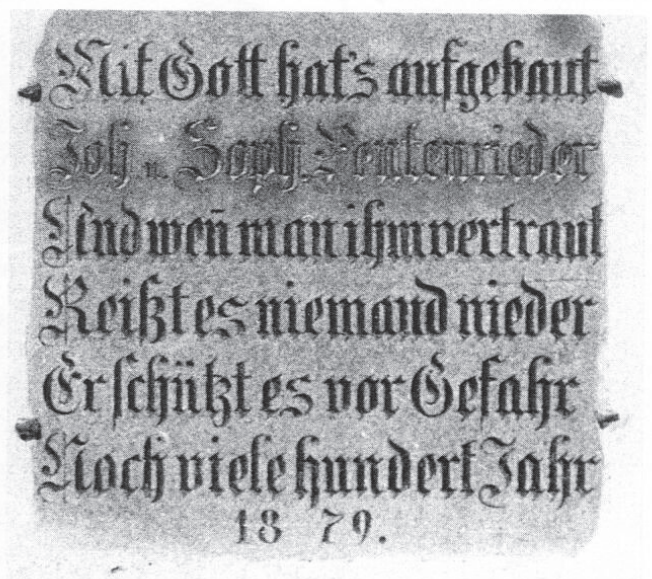 Mit Gott hat's aufgebaut
Joh u. Soph. Pentenrieder
Und wen̄ man ihm vertraut
Reißt es niemand nieder
Er schützt es vor Gefahr
Noch viele hundert Jahr
18 79.